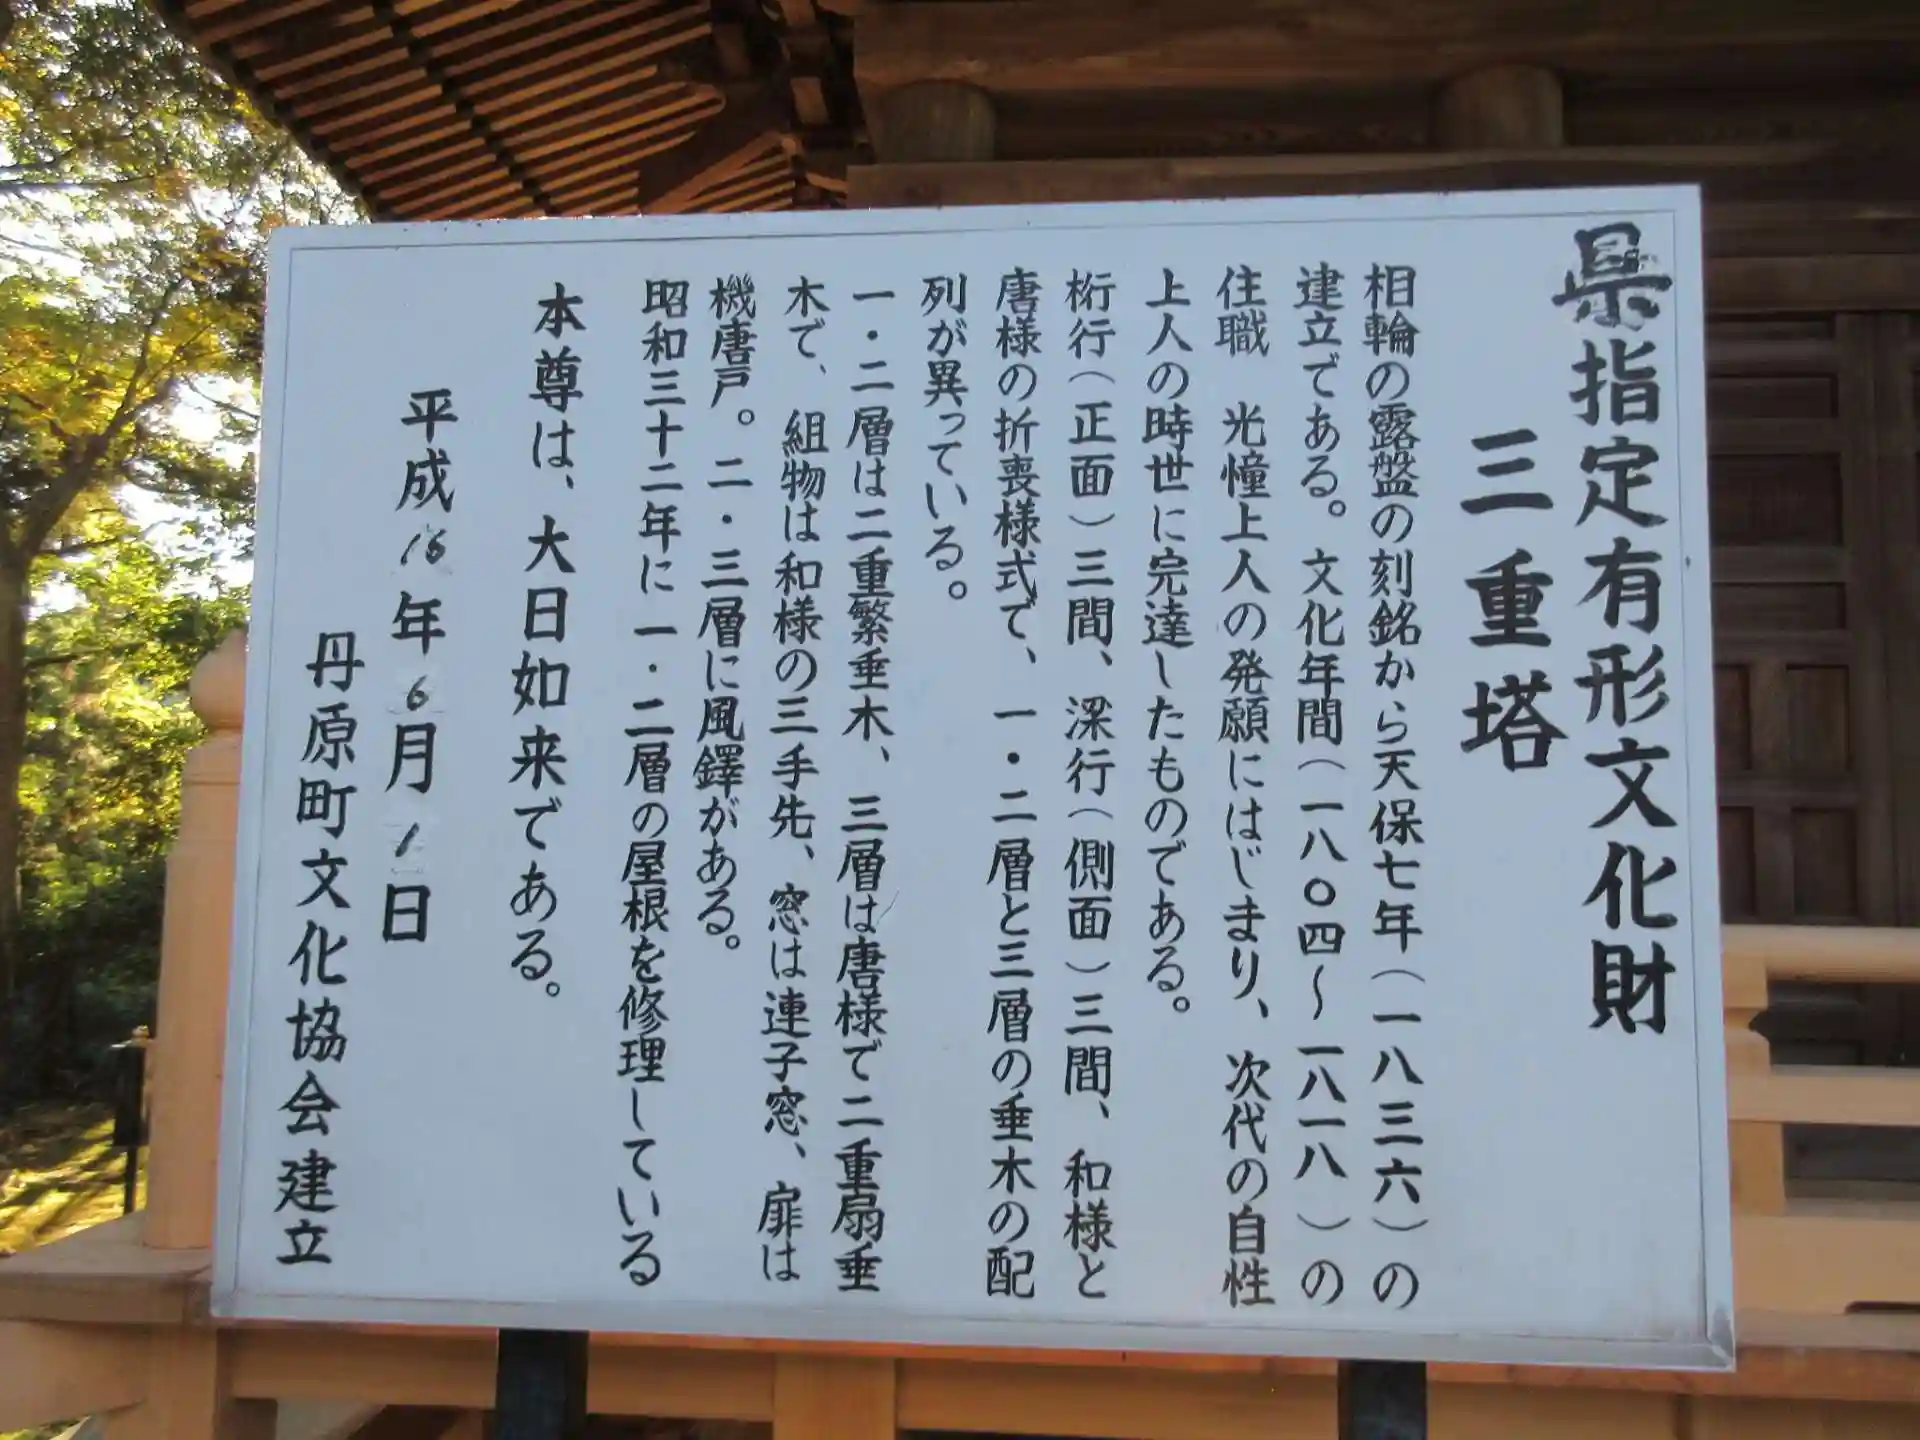 県指定有形文化財
三重塔
相輪の露盤の刻銘から天保七年(一八三六)の
建立である。文化年間(一八〇四〜一八一八)の
住職 光憧上人の発願にはじまり、次代の自性
上人の時世に完達したものである。
桁行(正面)三間、梁行(側面)三間、和様と
唐様の折喪様式で、一・二層と三層の垂木の配
列が異っている。
一・二層は二重繁垂木、三層は唐様で二重扇垂
木で、組物は和様の三手先、窓は連子窓、扉は
機唐戸。二・三層に風鐸がある。
昭和三十二年に一・二層の屋根を修理している
本尊は、大日如来である。
平成16年6月1日
丹原町文化協会建立